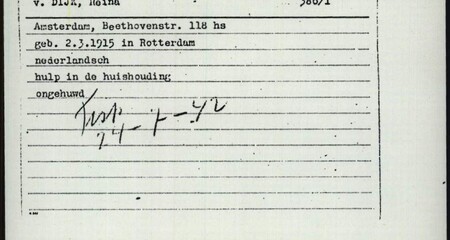 v. DIJK, Reina 386/1
Amsterdam, Beethovenstr. 118 hs
geb. 2.3.1915 in Rotterdam
nederlandsch
hulp in de huishouding
ongehuwd
24-7-42